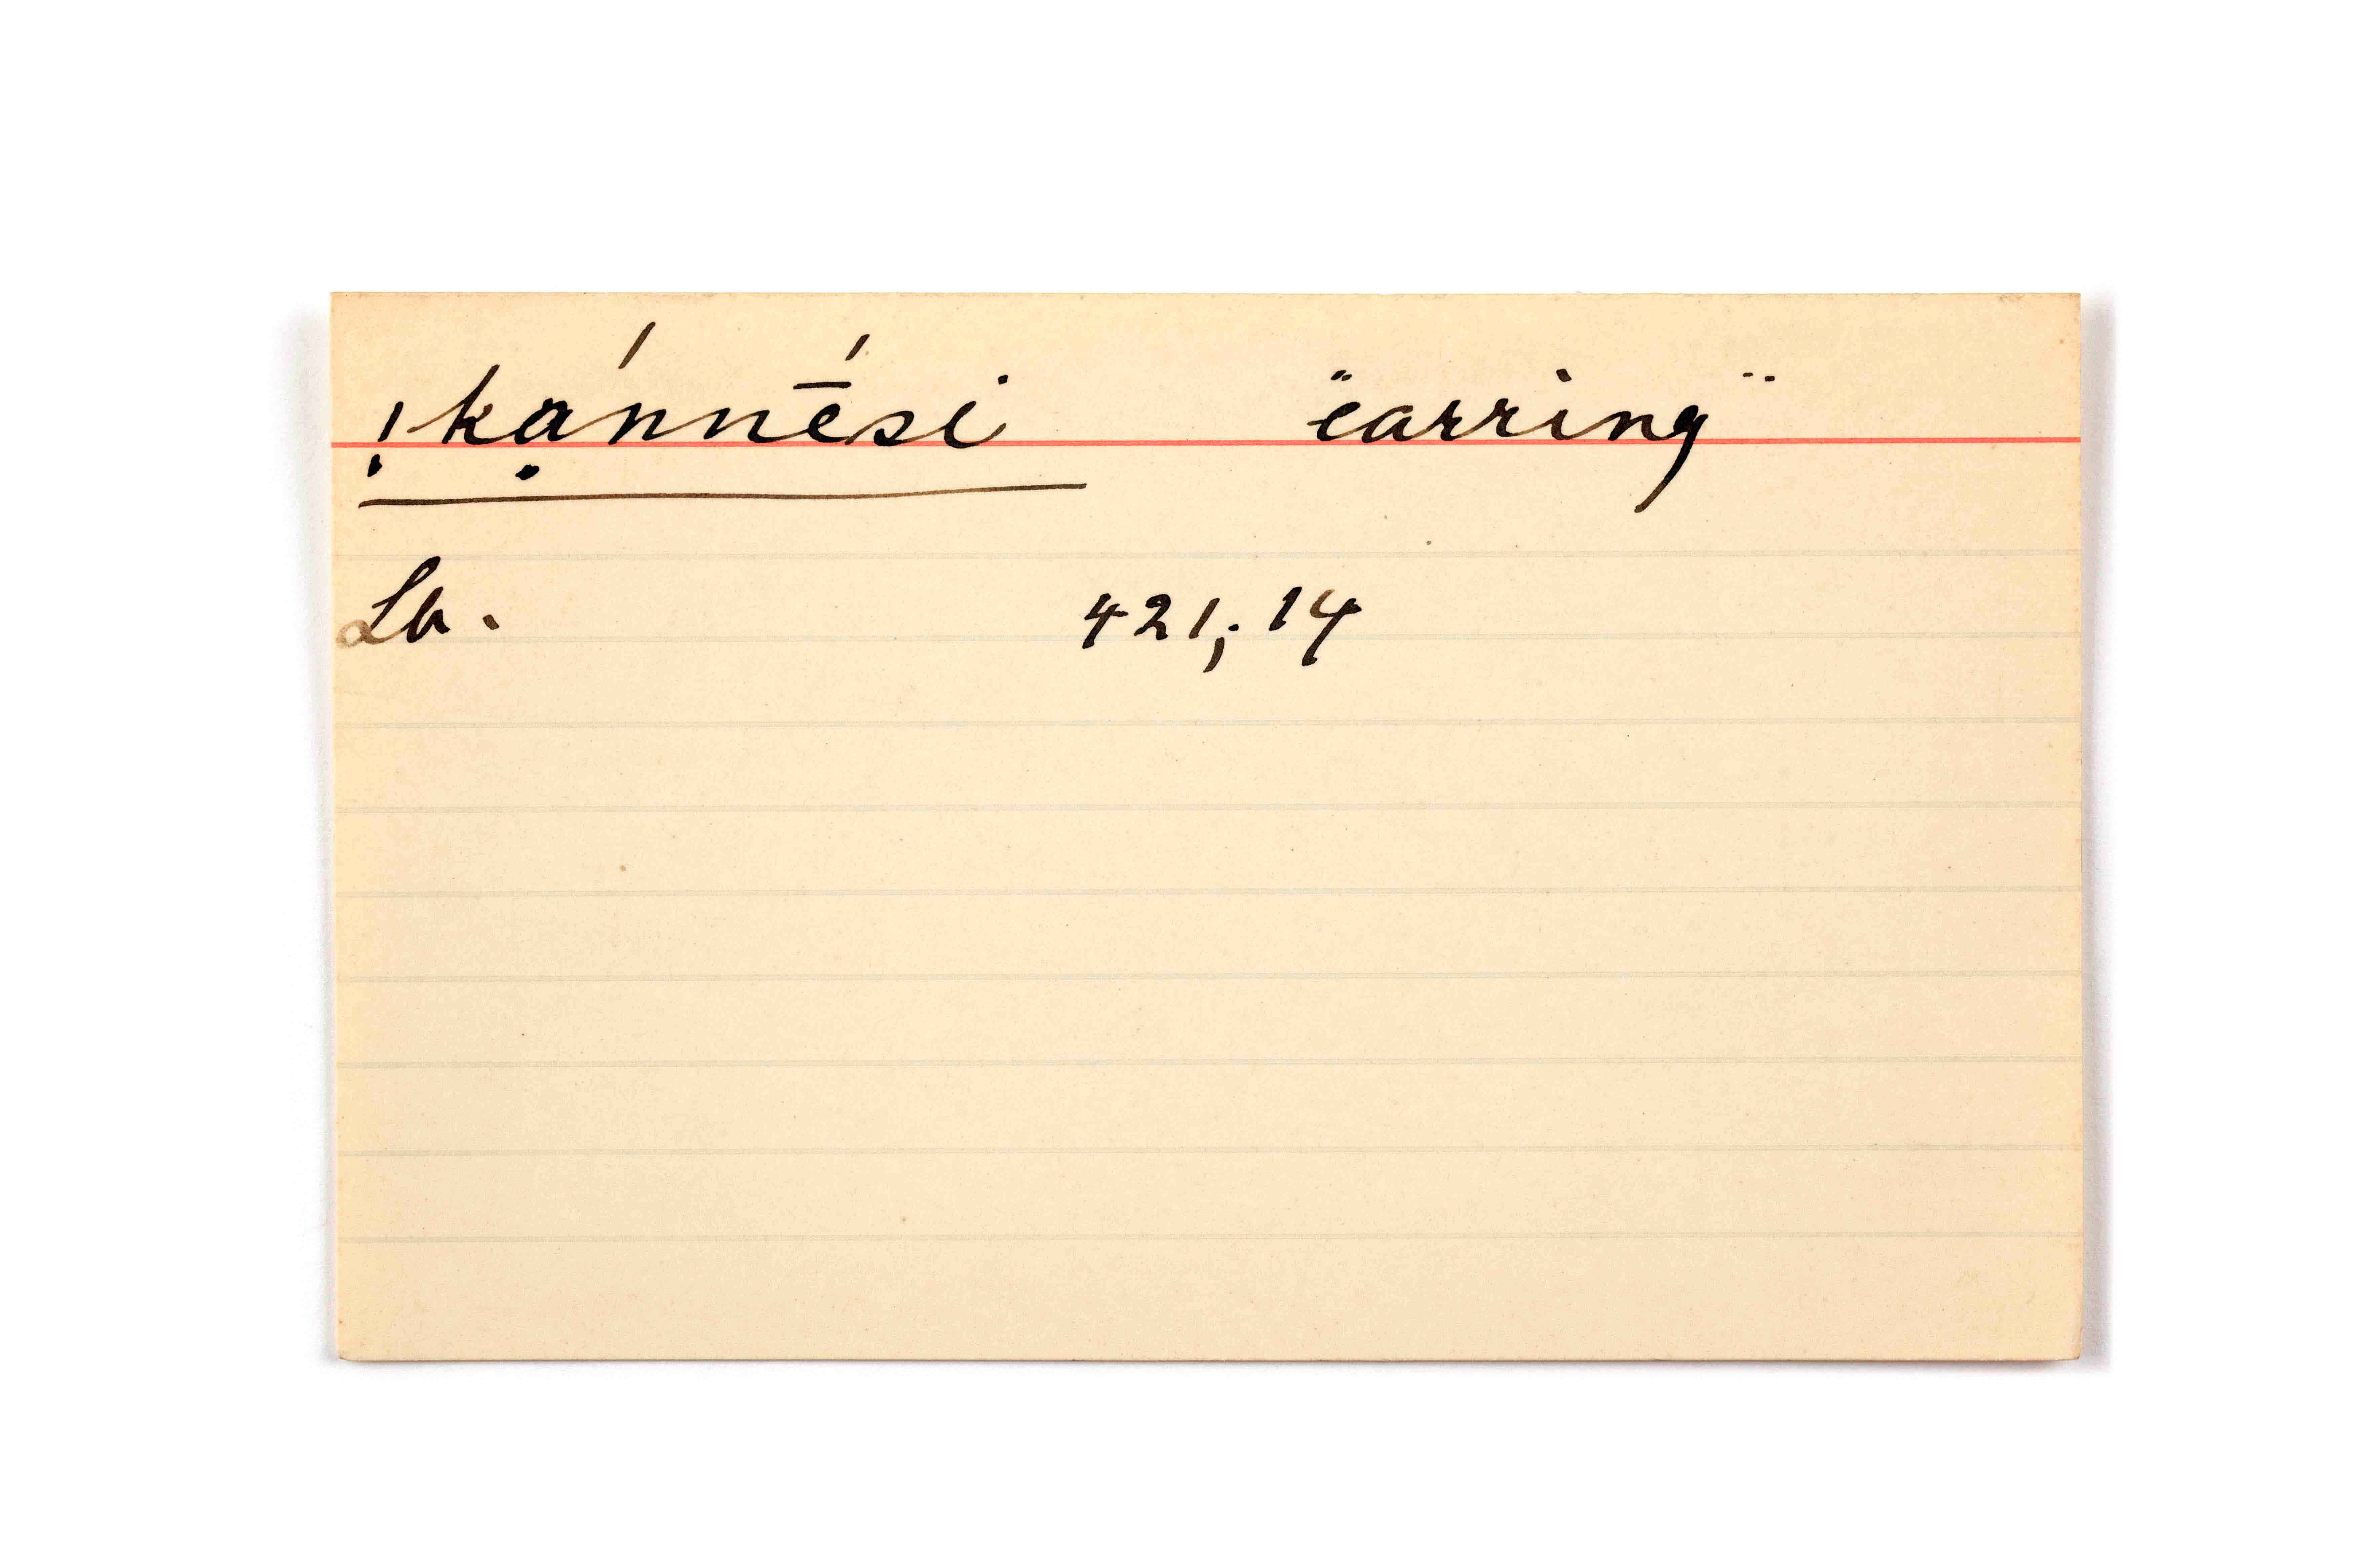 !kạ́nnḗsi "earring"
Lb. 421; 14